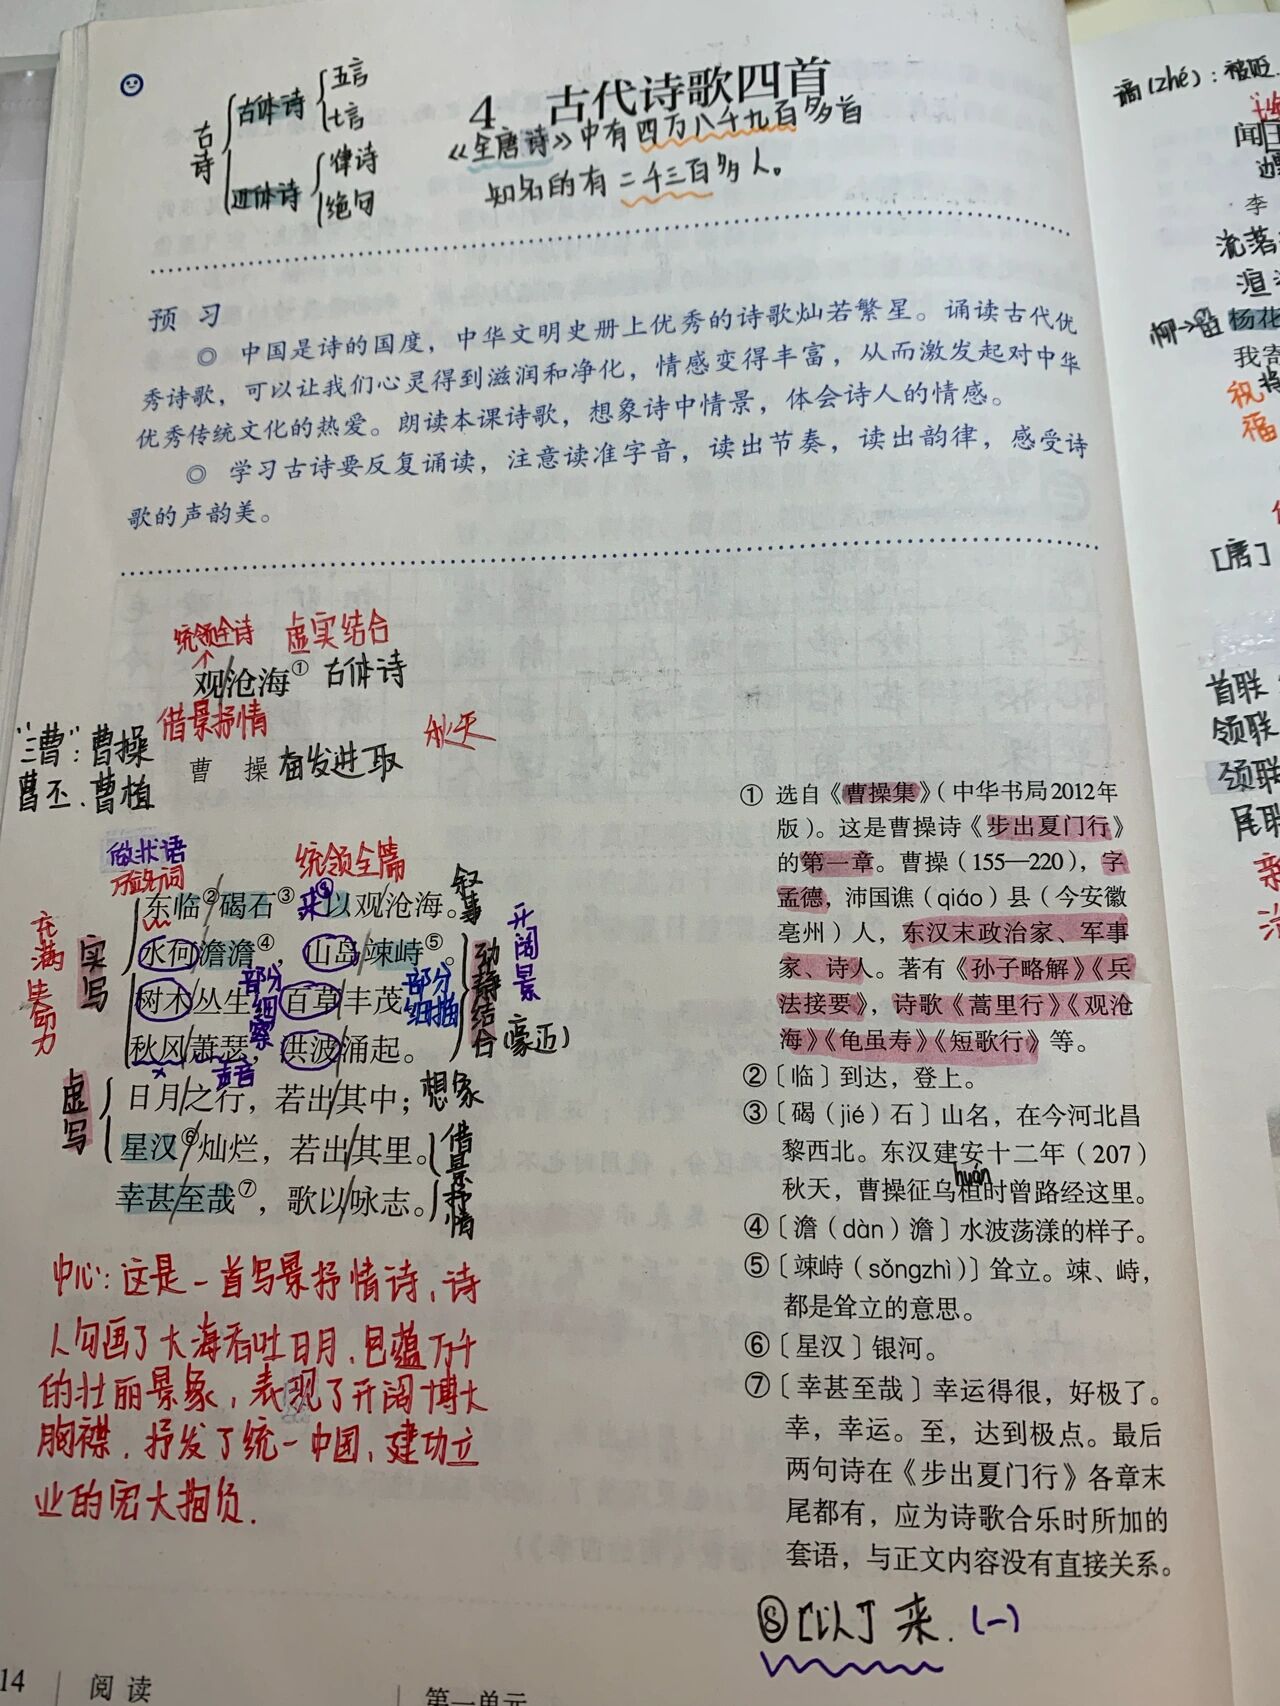 4 古代诗歌四首
古诗
古体诗
五言
七言
近体诗
律诗
绝句
《全唐诗》中有四万八千九百多首
知名的有二千三百多人。
预 习
◎ 中国是诗的国度，中华文明史册上优秀的诗歌灿若繁星。诵读古代优
秀诗歌，可以让我们心灵得到滋润和净化，情感变得丰富，从而激发起对中华
优秀传统文化的热爱。朗读本课诗歌，想象诗中情景，体会诗人的情感。
◎ 学习古诗要反复诵读，注意读准字音，读出节奏，读出韵律，感受诗
歌的声韵美。
统领全诗 虚实结合
观/沧海① 古体诗
借景抒情
秋天
"三曹"：曹操
曹丕、曹植
曹 操 奋发进取
做状语
方位名词
统领全篇
来⑧
东临②/碣石③，以观/沧海。
叙事
水何/澹澹④，山岛/竦峙⑤。
树木/丛生，百草/丰茂。
秋风/萧瑟，洪波/涌起。
部分细察
部分细描
声音
动静结合
开阔景
(豪迈)
充满生命力
实写
日月/之行，若出/其中；想象
星汉⑥/灿烂，若出/其里。
虚写
幸甚/至哉⑦，歌以/咏志。
借景抒情
中心：这是一首写景抒情诗，诗
人勾画了大海吞吐日月、包蕴万千
的壮丽景象，表现了开阔博大
胸襟，抒发了统一中国，建功立
业的宏大抱负.
① 选自《曹操集》（中华书局2012年
版）。这是曹操诗《步出夏门行》
的第一章。曹操（155—220），字
孟德，沛国谯（qiáo）县（今安徽
亳州）人，东汉末政治家、军事
家、诗人。著有《孙子略解》《兵
法接要》，诗歌《蒿里行》《观沧
海》《龟虽寿》《短歌行》等。
②〔临〕到达，登上。
③〔碣（jié）石〕山名，在今河北昌
黎西北。东汉建安十二年（207）
huán
秋天，曹操征乌桓时曾路经这里。
④〔澹（dàn）澹〕水波荡漾的样子。
⑤〔竦峙（sǒngzhì）〕耸立。竦、峙，
都是耸立的意思。
⑥〔星汉〕银河。
⑦〔幸甚至哉〕幸运得很，好极了。
幸，幸运。至，达到极点。最后
两句诗在《步出夏门行》各章末
尾都有，应为诗歌合乐时所加的
套语，与正文内容没有直接关系。
⑧[以] 来. (一)
14 | 阅 读
第一单元
谪(zhé)：被贬.
闻
李
流落
柳→留 杨花
我寄
祝福
[唐]
首联
颔联
颈联
尾联